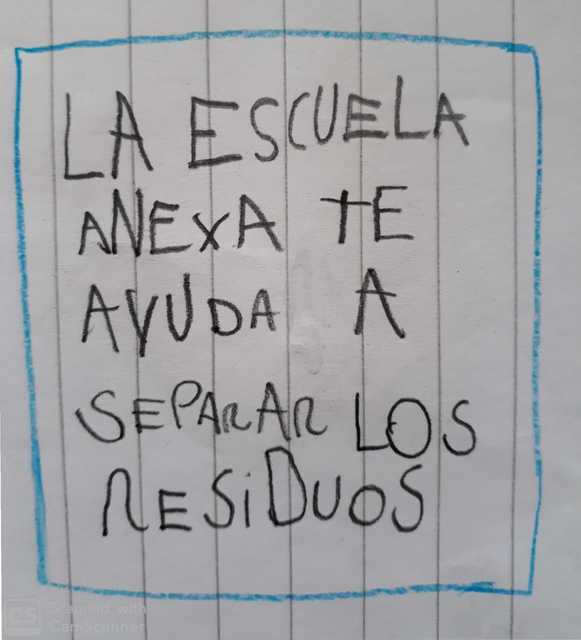 LA ESCUELA
ANEXA TE
AYUDA A
SEPARAR LOS
RESiDUOS
CS Scanned with
CamScanner